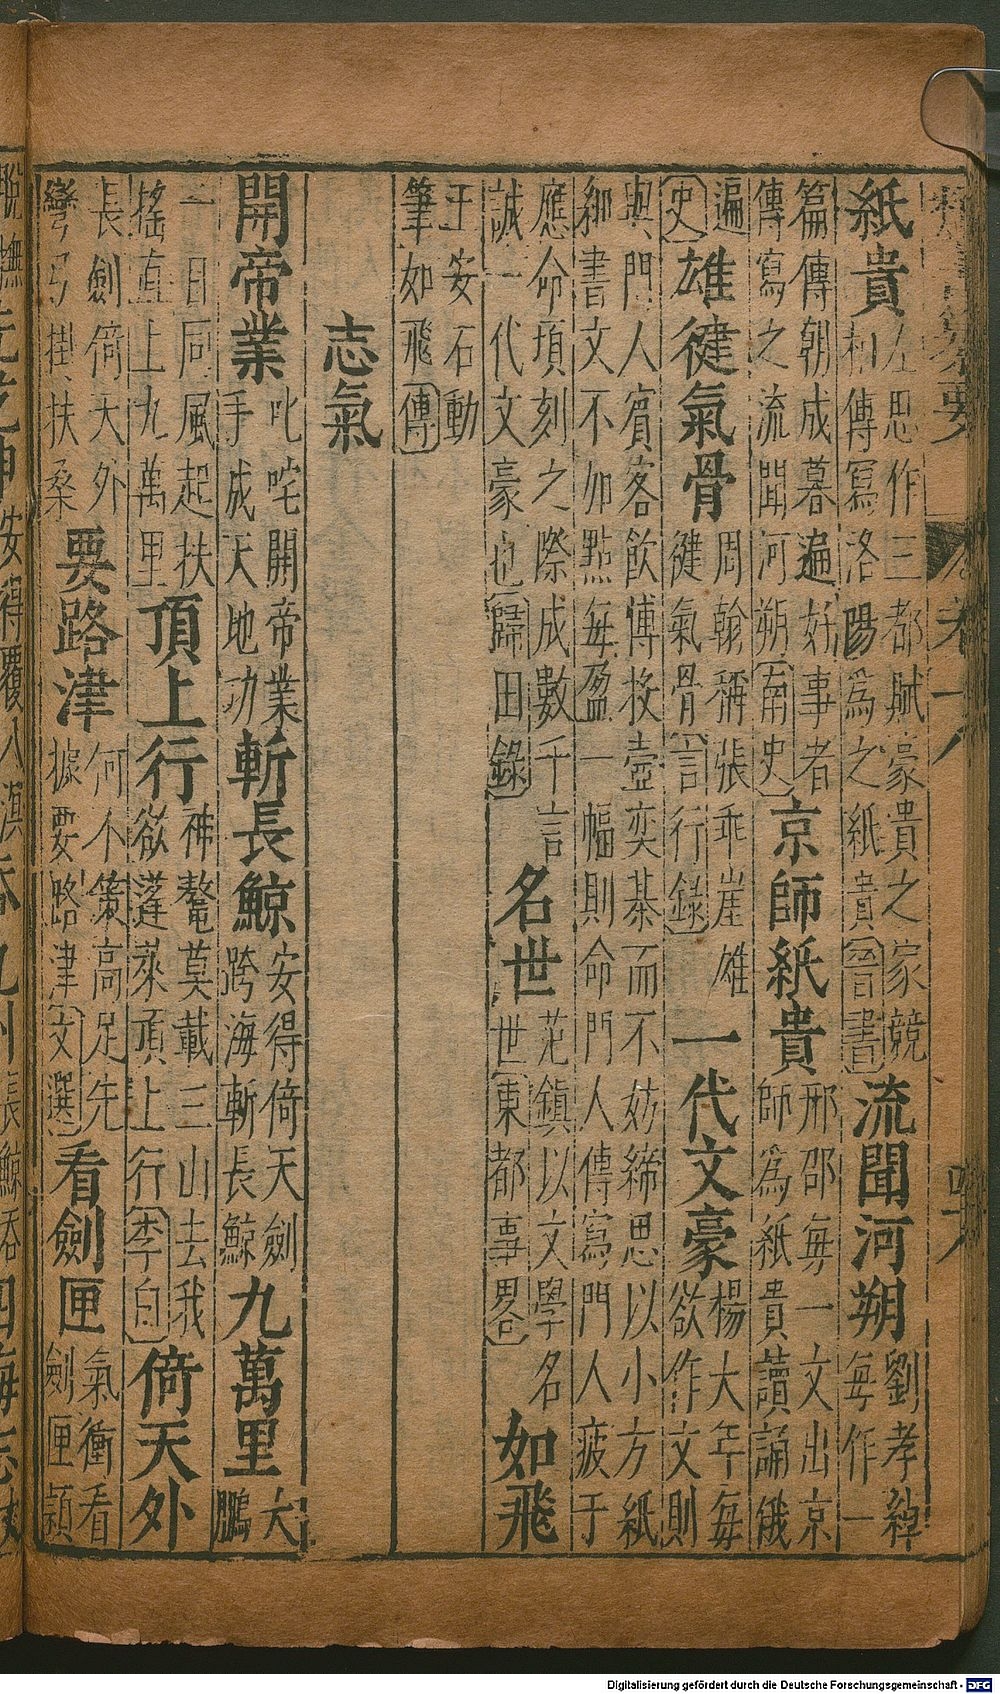 紙貴
左思作三都賦豪貴之家競
相傳寫洛陽為之紙貴晉書
流聞河朔
劉孝綽
每作一
篇傳朝成暮遍好事者
傳寫之流聞河朔南史
京師紙貴
邢邵每一文出京
師為紙貴讀誦俄
遍
史
雄徤氣骨
周翰稱張乖崖雄
徤氣骨言行錄
一代文豪
楊大年每
欲作文則
與門人賓客飲博投壺奕棊而不妨締思以小方紙
細書文不加點每盈一幅則命門人傳寫門人疲于
應命頃刻之際成數千言
誠一代文豪也歸田錄
名世
范鎮以文學名
世東都事畧
如飛
王安石動
筆如飛傳
志氣
開帝業
叱咤開帝業
手成天地功
斬長鯨
安得倚天劍
跨海斬長鯨
九萬里
大
鵬
一日同風起扶
搖直上九萬里
頂上行
神鼇莫載三山去我
欲蓬萊頂上行李白
倚天外
長劍倚天外
彎弓掛扶桑
要路津
何不策高足先
據要路津文選
看劍匣
氣衝看
劍匣頴
Digitalisierung gefördert durch die Deutsche Forschungsgemeinschaft - DFG